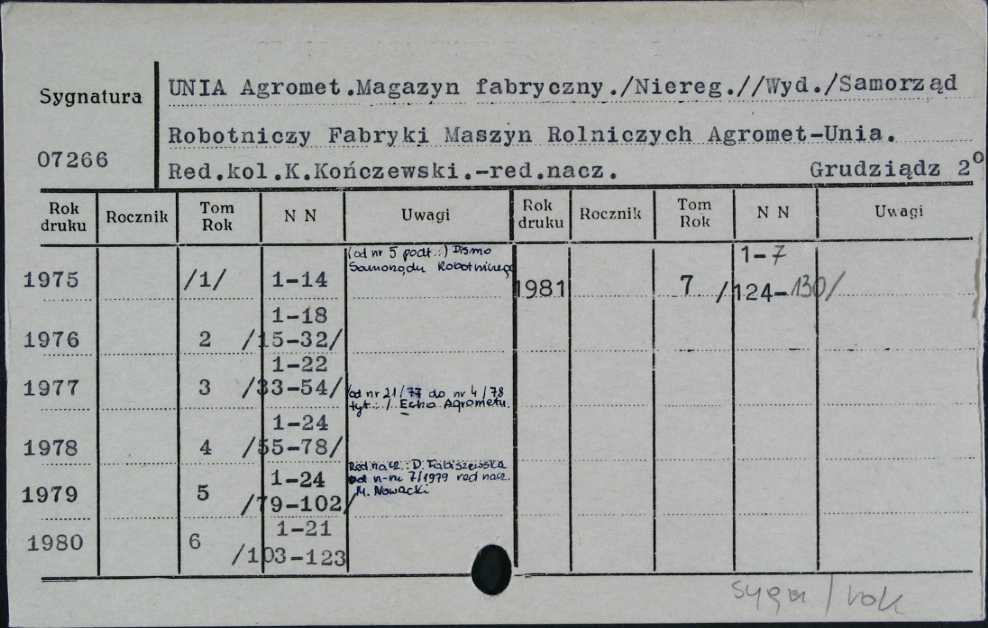 Sygnatura
07266
UNIA Agromet.Magazyn fabryczny./Niereg.//Wyd./Samorząd
Robotniczy Fabryki Maszyn Rolniczych Agromet-Unia.
Red.kol.K.Kończewski.-red.nacz. Grudziądz 2°
Rok druku Rocznik Tom Rok N N Uwagi Rok druku Rocznik Tom Rok N N Uwagi
1975 /1/ 1-14 (od nr 5 podt.:) Pismo
Samorządu Robotniczego
1976 2 1-18
/15-32/
1977 3 1-22
/33-54/ /od nr 21/77 do nr 4/78
tyt.:/ Echo Agrometu.
1978 4 1-24
/55-78/
1979 5 1-24
/79-102/ Red nacz.: D. Fabiszewska
od n-ru 7/1979 red nacz.
M. Nowacki
1980 6 1-21
/103-123
1981 7 1-7
/124-130/
sygn / rok